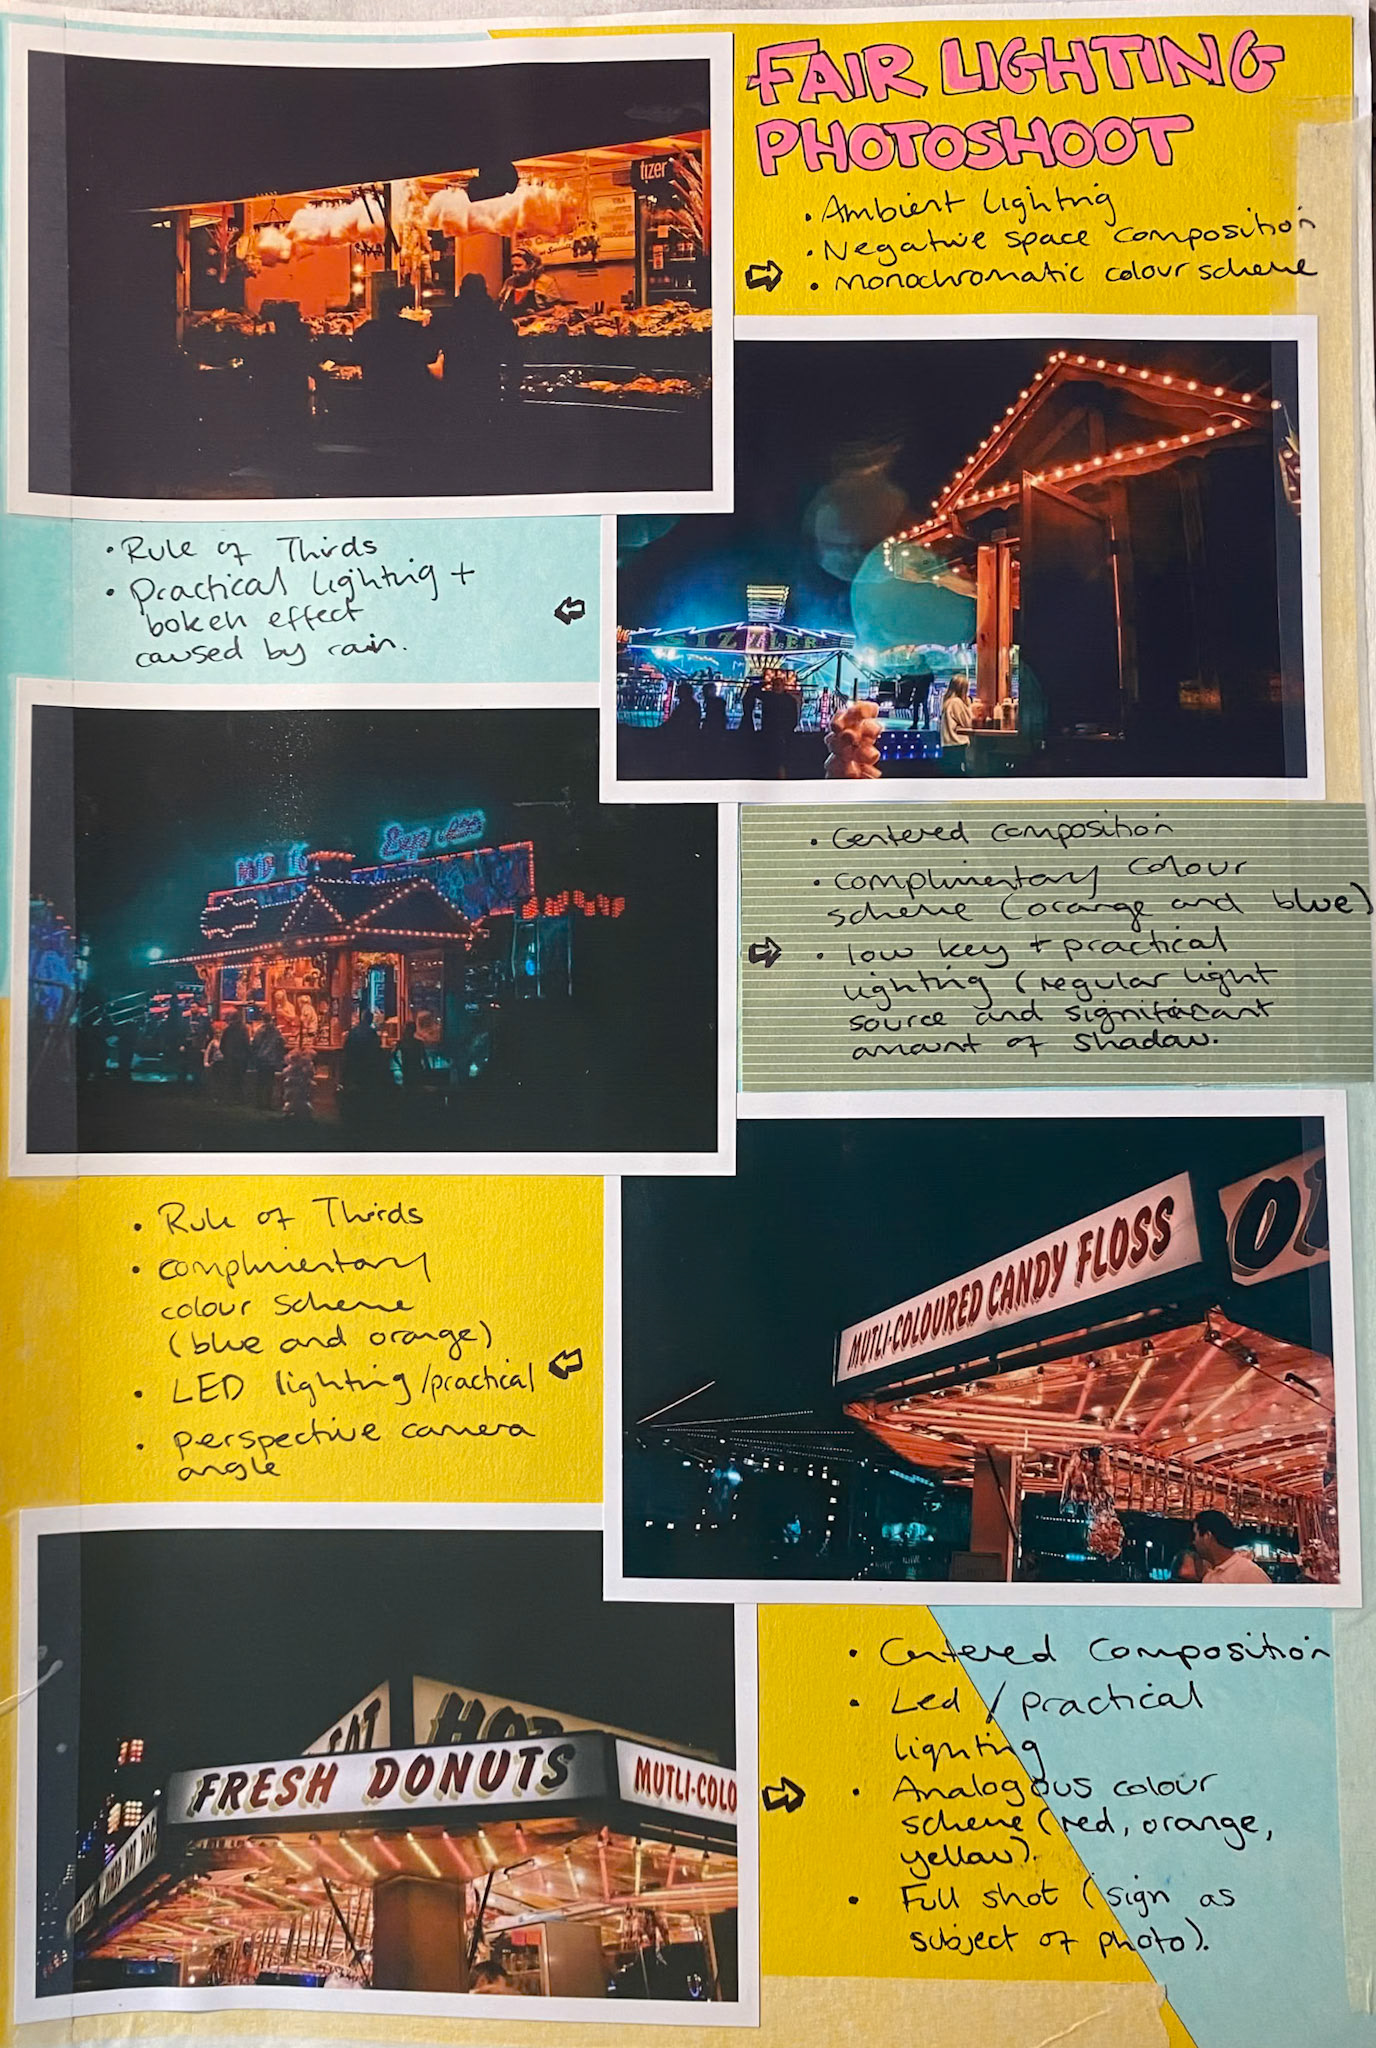 FAIR LIGHTING
PHOTOSHOOT
• Ambient lighting
• Negative space composition
• monochromatic colour scheme
tizer
• Rule of Thirds
• Practical lighting +
bokeh effect
caused by rain.
SIZZLER
• Centered composition
• complimentary colour
scheme (orange and blue)
• low key + practical
lighting (regular light
source and significant
amount of shadow.
• Rule of Thirds
• complimentary
colour scheme
(blue and orange)
• LED lighting/practical
• perspective camera
angle
MUTLI-COLOURED CANDY FLOSS
• Centered composition
• Led / practical
lighting
• Analogous colour
scheme (red, orange,
yellow).
• Full shot (sign as
subject of photo).
EAT HOT
FRESH DONUTS
MUTLI-COLO
JUMBO HOT DOG